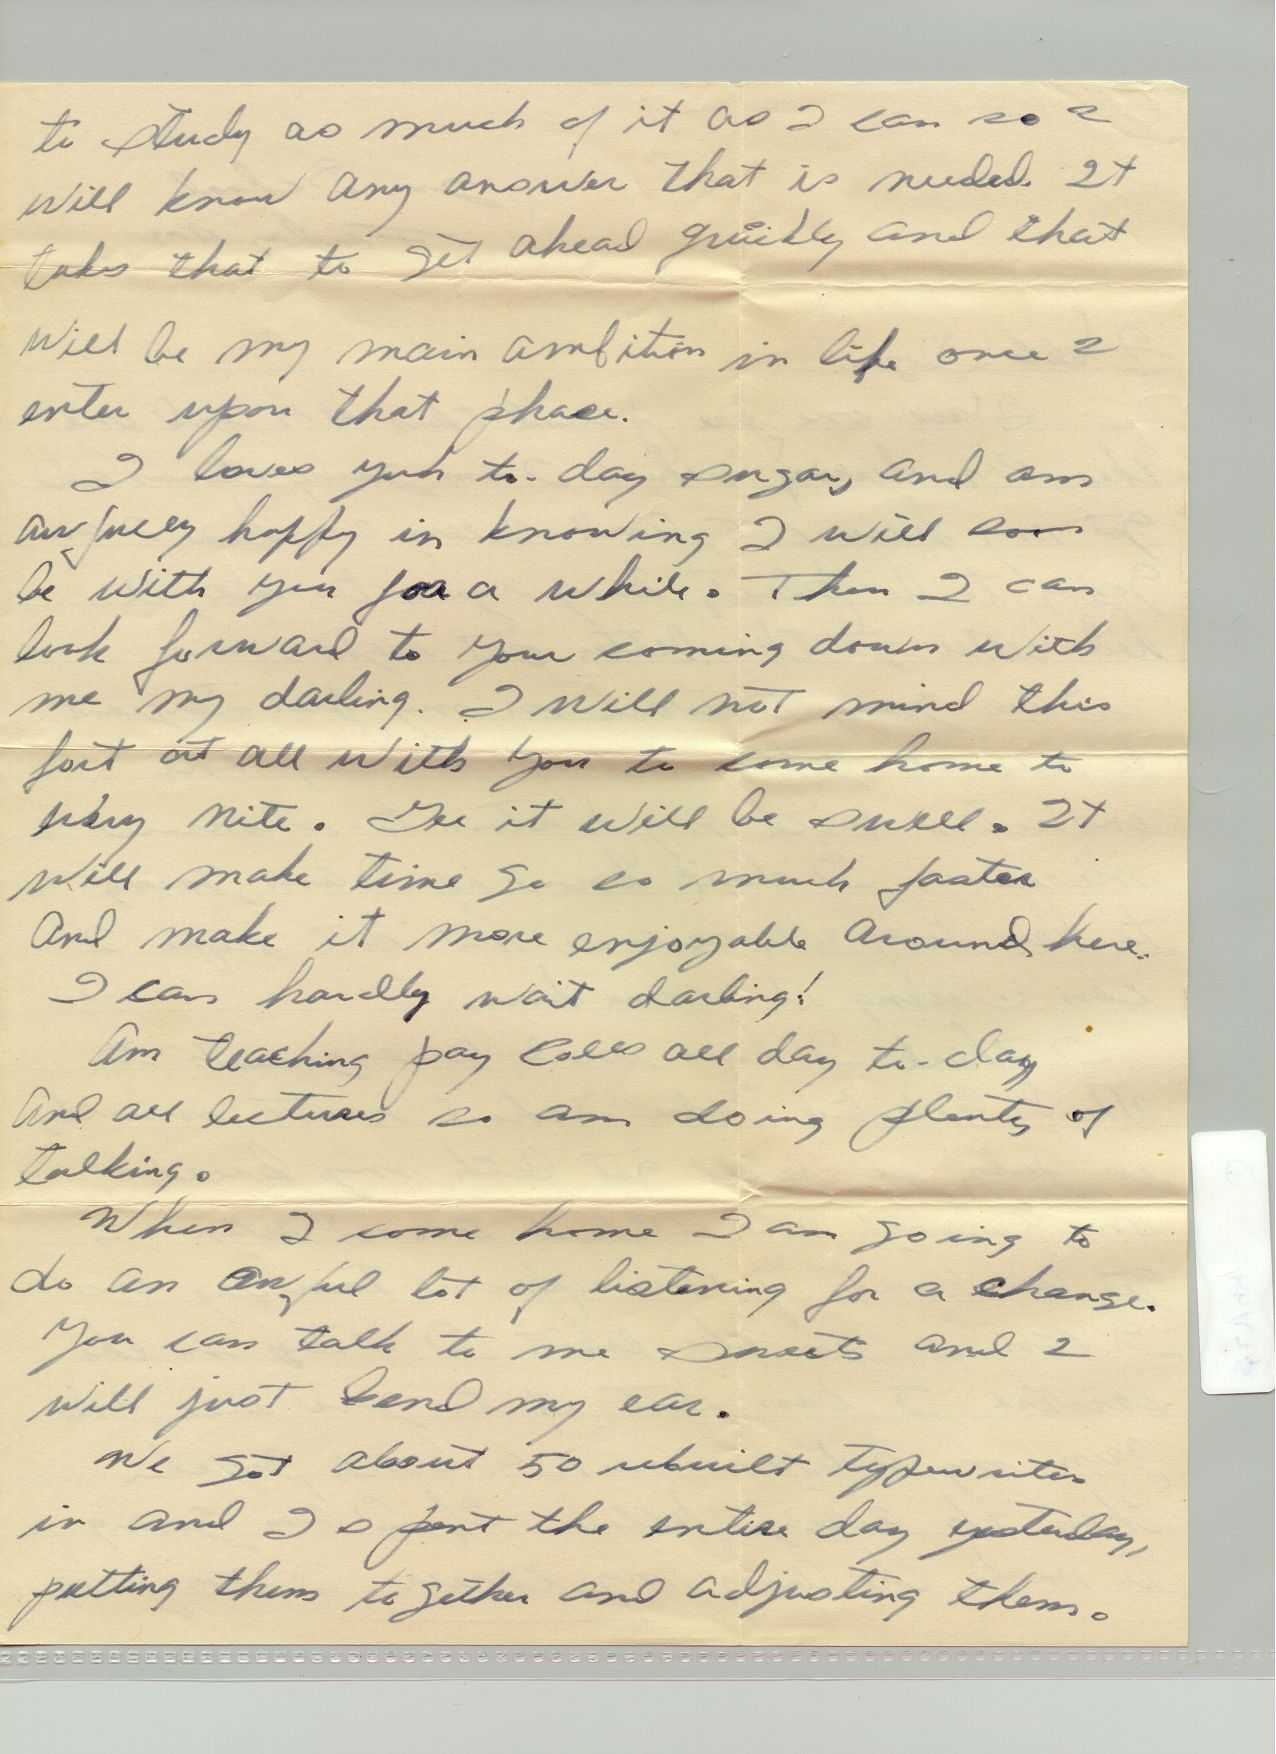 to study as much of it as I can so I
will know any answer that is needed. It
takes that to get ahead quickly and that
will be my main ambition in life once I
enter upon that phase.
I loves yuh to-day sugar, and am
awfully happy in knowing I will soon
be with you for a while. Then I can
look forward to your coming down with
me my darling. I will not mind this
fort at all with you to come home to
every nite. Gee it will be swell. It
will make time go so much faster
and make it more enjoyable around here.
I can hardly wait darling!
Am teaching pay rolls all day to-day
and all lectures so am doing plenty of
talking.
When I come home I am going to
do an awful lot of listening for a change.
You can talk to me sweets and I
will just bend my ear.
We got about 50 rebuilt typewriters
in and I spent the entire day yesterday,
putting them together and adjusting them.